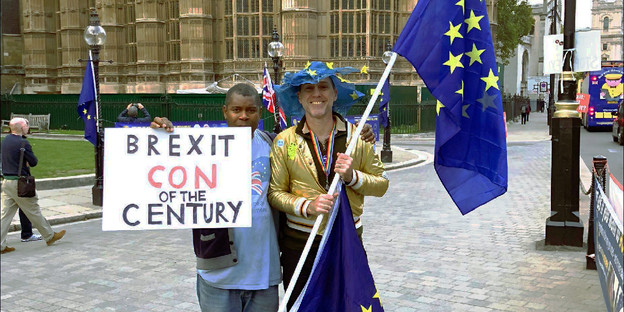 BREXIT
CON
OF THE
CENTURY